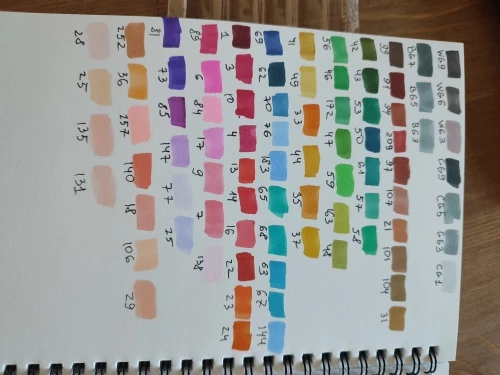 WG9 WG6 WG3 CG9 CG5 GG3 CG1
BG7 BG5 BG3
99 91 94 209 97 107 21 101 104 31
42 43 53 50 61 57 58
56 46 172 47 59 63 48
41 49 33 44 35 37
69 62 70 76 183 65 68 63 67 144
1 3 10 4 13 14 16 22 23 24
89 6 84 17 9 7 138
81 73 85 147 77 75
252 36 257 140 18 106 29
28 25 135 131